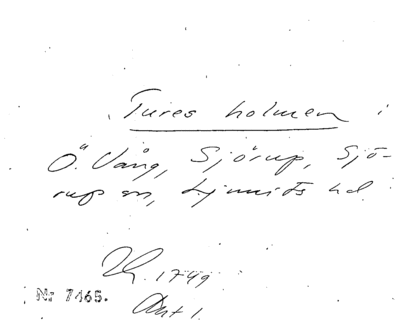 Tures holmen i
Ö. Vång, Sjörup, Sjö-
rup sn, Ljunits hd
1749
Akt 1.
Nr 7465.